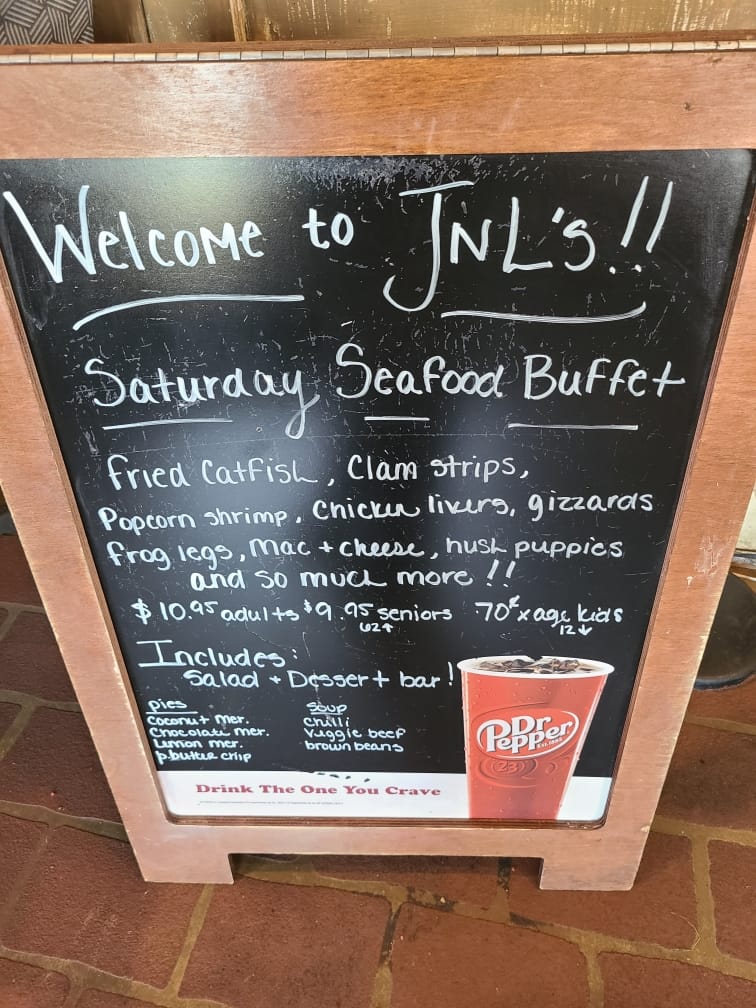 Welcome to JNL's!!
Saturday Seafood Buffet
fried Catfish, Clam strips,
Popcorn shrimp, Chicken livers, gizzards
frog legs, Mac + cheese, hush puppies
and so much more!!
$10.95 adults $9.95 seniors 70¢ x age kids
62↑ 12↓
Includes:
Salad + Dessert bar!
pies
Coconut mer.
Chocolate mer.
Lemon mer.
p.butter chip
Soup
Chilli
Veggie beef
brown beans
Dr Pepper
EST. 1885
23
Drink The One You Crave